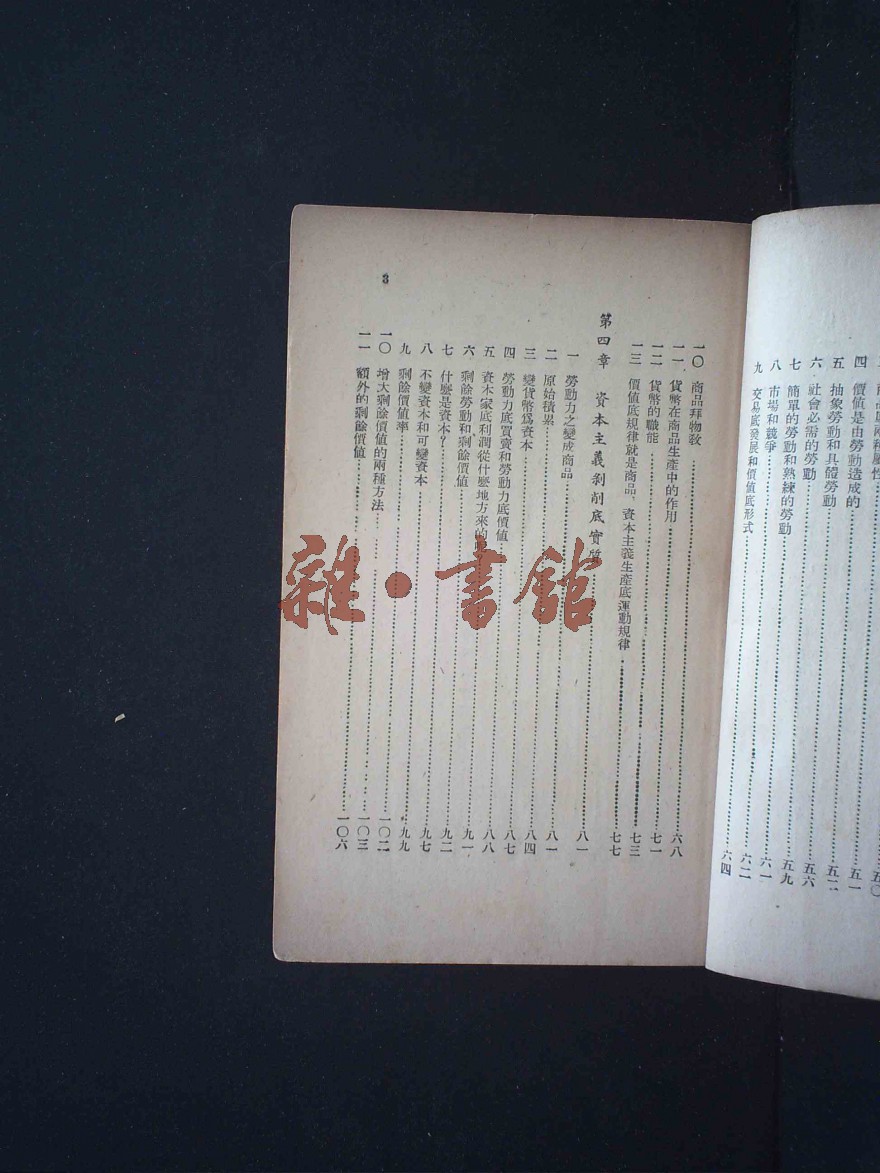 五〇
商品底兩種屬性……五一
四 價值是由勞動造成的……五二
五 抽象勞動和具體勞動……五六
六 社會必需的勞動……五九
七 簡單的勞動和熟練的勞動……六一
八 市場和競爭……六二
九 交易底發展和價值底形式……六四
一〇 商品拜物教……六八
一一 貨幣在商品生產中的作用……七一
一二 貨幣的職能……七三
一三 價值底規律就是商品,資本主義生產底運動規律……七七
第四章 資本主義剝削底實質……八一
一 勞動力之變成商品……八一
二 原始積累……八四
三 變貨幣爲資本……八七
四 勞動力底買賣和勞動力底價値……八八
五 資本家底利潤從什麼地方來的……九一
六 剩餘勞動和剩餘價值……九二
七 什麼是資本?……九七
八 不變資本和可變資本……九九
九 剩餘價值率……一〇二
一〇 增大剩餘價值的兩種方法……一〇三
一一 額外的剩餘價值……一〇六
3
雜·書館